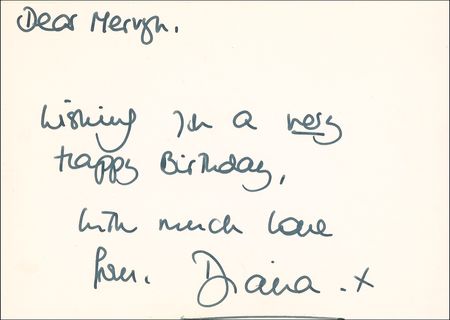 Dear Mervyn.
Wishing you a very
happy Birthday,
with much love
from. Diana . x